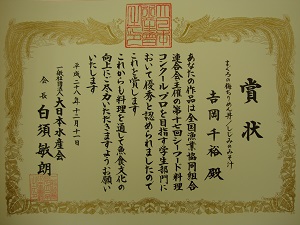 賞状
まぐろの梅ちりめん丼/しじみのみそ汁
吉岡千裕殿
あなたの作品は全国漁業協同組合
連合会主催の第十二回シーフード料理
コンクールプロを目指す学生部門に
おいて優秀と認められましたので
これを賞します
これからも料理を通して魚食文化の
向上にご尽力いただきますようお願い
いたします
平成二十八年十一月十一日
一般社団法人大日本水産会
会長白須敏朗